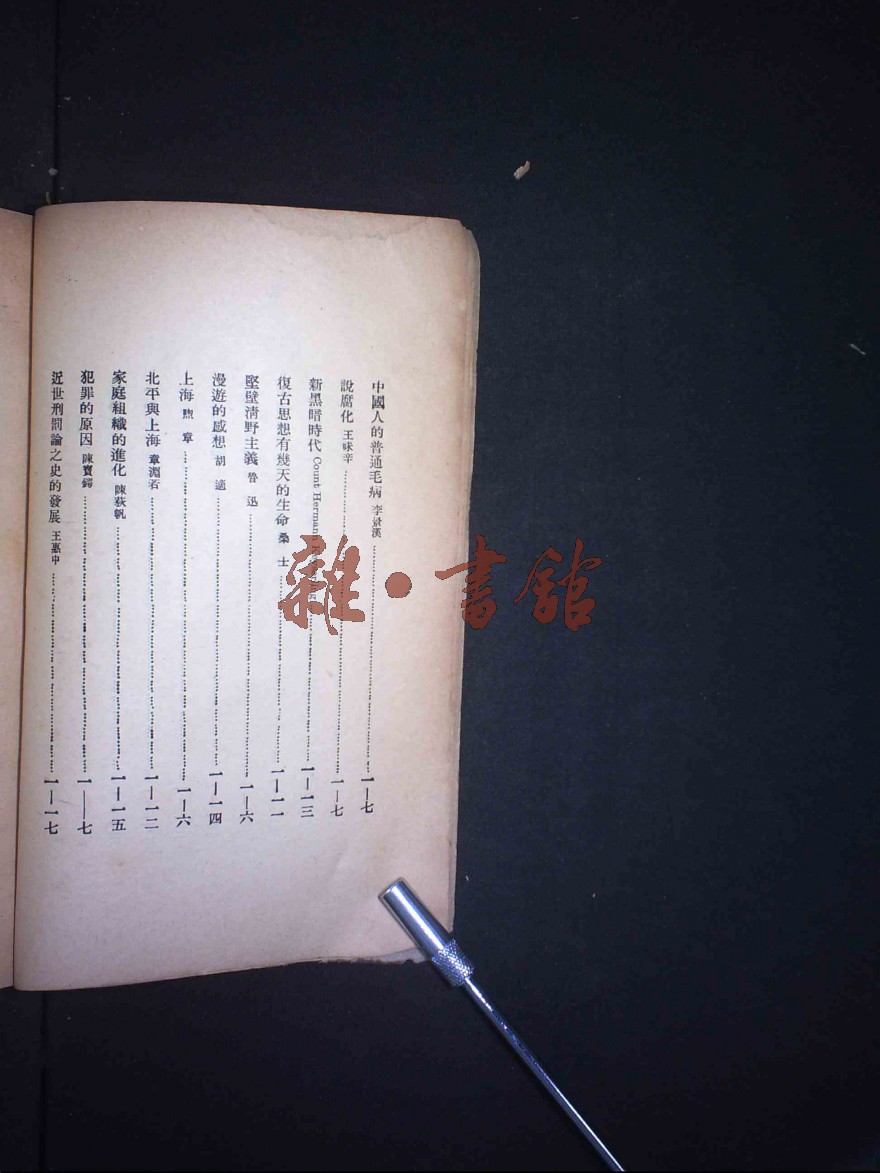 中國人的普通毛病 李景漢 一—七
說腐化 王味辛 一—七
新黑暗時代 Count Hermann 一—一三
復古思想有幾天的生命 桑士 一—一一
堅壁清野主義 魯迅 一—六
漫遊的感想 胡適 一—一四
上海 煦章 一—六
北平與上海 章淵若 一—一二
家庭組織的進化 陳荻帆 一—一五
犯罪的原因 陳寶鍔 一—七
近世刑罰論之史的發展 王惠中 一—一七
雜·書館